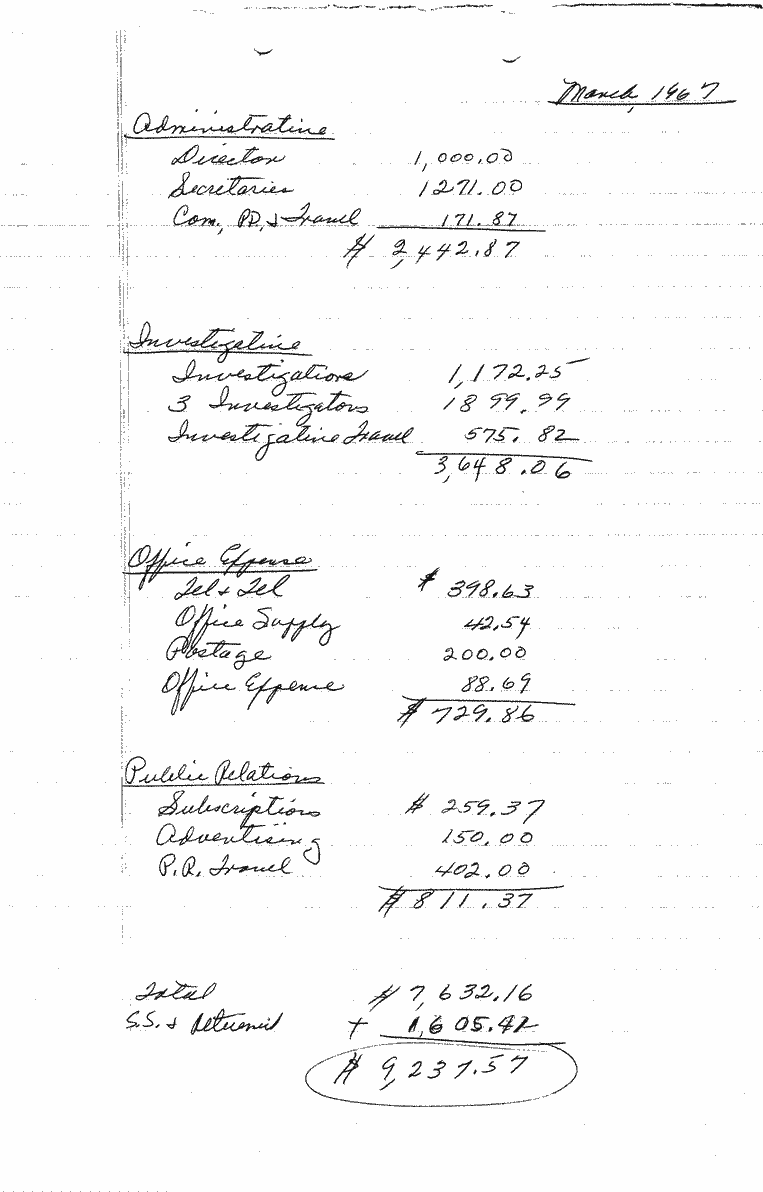 March, 1967
Administrative
Director 1,000.00
Secretaries 1271.00
Com., PD, & Travel 171.87
$ 2,442.87
Investigative
Investigations 1,172.25
3 Investigators 1899.99
Investigative Travel 575.82
3,648.06
Office Expense
Tel & Tel $ 398.63
Office Supply 42.54
Postage 200.00
Office Expense 88.69
$ 729.86
Public Relations
Subscriptions $ 259.37
Advertising 150.00
P.R. Travel 402.00
$ 811.37
Total $ 7,632.16
S.S. & Retirement + 1,605.42
$ 9,237.57